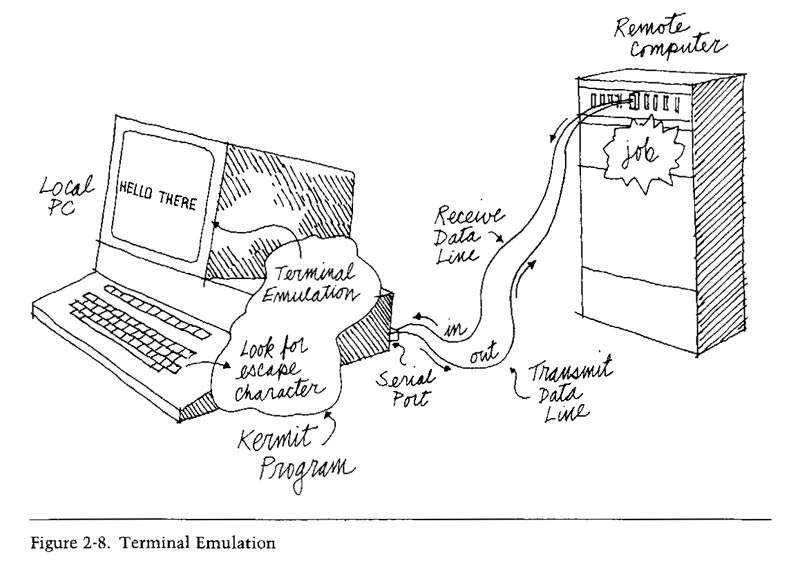 Remote
Computer
job
Local
PC
HELLO THERE
Receive
Data
Line
Terminal
Emulation
in
out
Look for
escape
character
Serial
Port
Transmit
Data
Line
Kermit
Program
Figure 2-8. Terminal Emulation